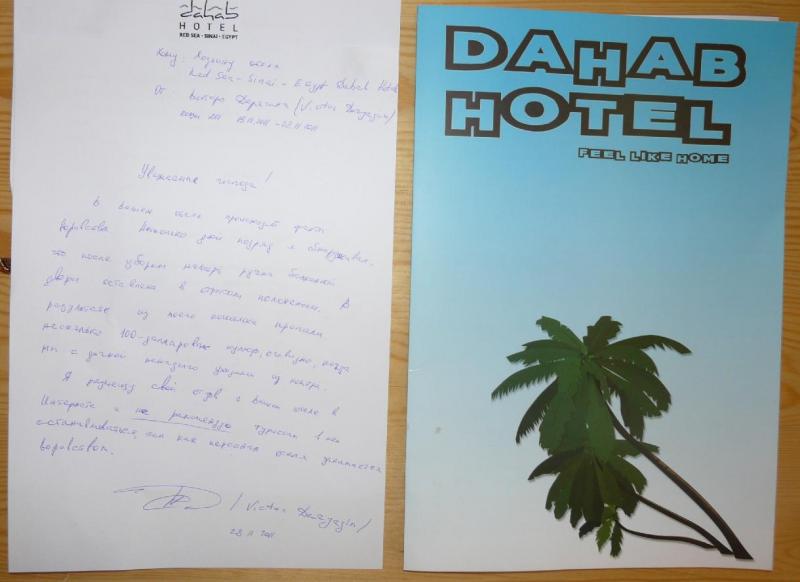 dahab
HOTEL
RED SEA - SINAI - EGYPT
Кому: отеля
Red Sea - Sinai - Egypt Dahab Hotel
От: Виктора (Victor
- 28 11 2011
Уважаемые господа!
В Вашем отеле происходят факты
воровства. Несколько дней подряд я обнаруживал,
что после уборки номера ручка балконной
двери оставлена в открытом положении. В
результате из моего кошелька пропали
несколько 100-долларовых купюр, очевидно, когда
мы с дочкой ненадолго уходили из номера.
Я размещу свой отзыв о Вашем отеле в
Интернете и не рекомендую туристам в нем
останавливаться, так как персонал отеля занимается
воровством.
/ Victor /
28 11 2011
DAHAB
HOTEL
FEEL LIKE HOME